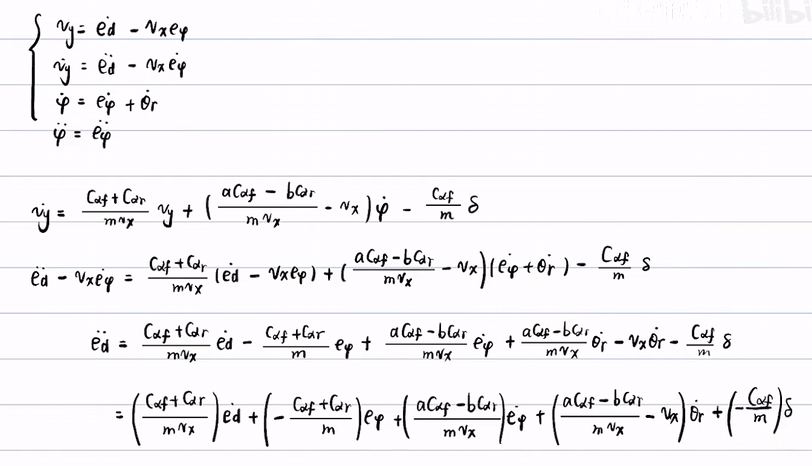 bilibili
v_y = ė_d - v_x e_φ
v̇_y = ë_d - v_x ė_φ
φ̇ = ė_φ + θ̇_r
φ̈ = ë_φ
v̇_y = \frac{C_{αf} + C_{αr}}{m v_x} v_y + ( \frac{a C_{αf} - b C_{αr}}{m v_x} - v_x ) φ̇ - \frac{C_{αf}}{m} δ
ë_d - v_x ė_φ = \frac{C_{αf} + C_{αr}}{m v_x} (ė_d - v_x e_φ) + ( \frac{a C_{αf} - b C_{αr}}{m v_x} - v_x ) (ė_φ + θ̇_r) - \frac{C_{αf}}{m} δ
ë_d = \frac{C_{αf} + C_{αr}}{m v_x} ė_d - \frac{C_{αf} + C_{αr}}{m} e_φ + \frac{a C_{αf} - b C_{αr}}{m v_x} ė_φ + \frac{a C_{αf} - b C_{αr}}{m v_x} θ̇_r - v_x θ̇_r - \frac{C_{αf}}{m} δ
= ( \frac{C_{αf} + C_{αr}}{m v_x} ) ė_d + ( - \frac{C_{αf} + C_{αr}}{m} ) e_φ + ( \frac{a C_{αf} - b C_{αr}}{m v_x} ) ė_φ + ( \frac{a C_{αf} - b C_{αr}}{m v_x} - v_x ) θ̇_r + ( - \frac{C_{αf}}{m} ) δ